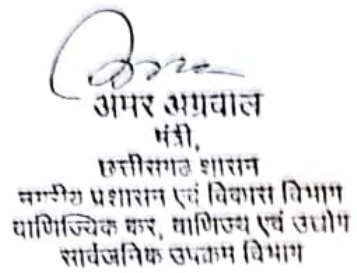 अमर अग्रवाल
मंत्री,
छत्तीसगढ शासन
नगरीय प्रशासन एवं विकास विभाग
वाणिज्यिक कर, वाणिज्य एवं उद्योग
सार्वजनिक उपक्रम विभाग